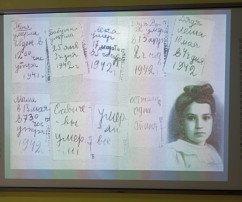 Женя
умерла
28 дек в
12.00 час
утра
1941 г
Бабушка
25 янв
3 ч дня
1942 г
Лека
умер
17 марта
1942 г
13 апр
2 ч ночь
1942
Дядя
Леша
10 мая
в 4 ч дня
1942
Мама
в 13 мая
в 7.30
час
утра
1942
Савиче-
вы
умер
ли
умер
ли
все
Осталась
одна
Таня